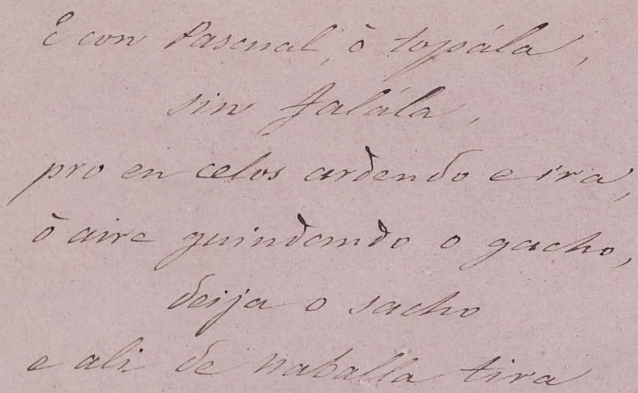 E con Pascual, ô topála,
sin falála,
pro en celos ardendo e ira,
ô aire guindando o gacho,
deija o sacho
e ali de naballa tira